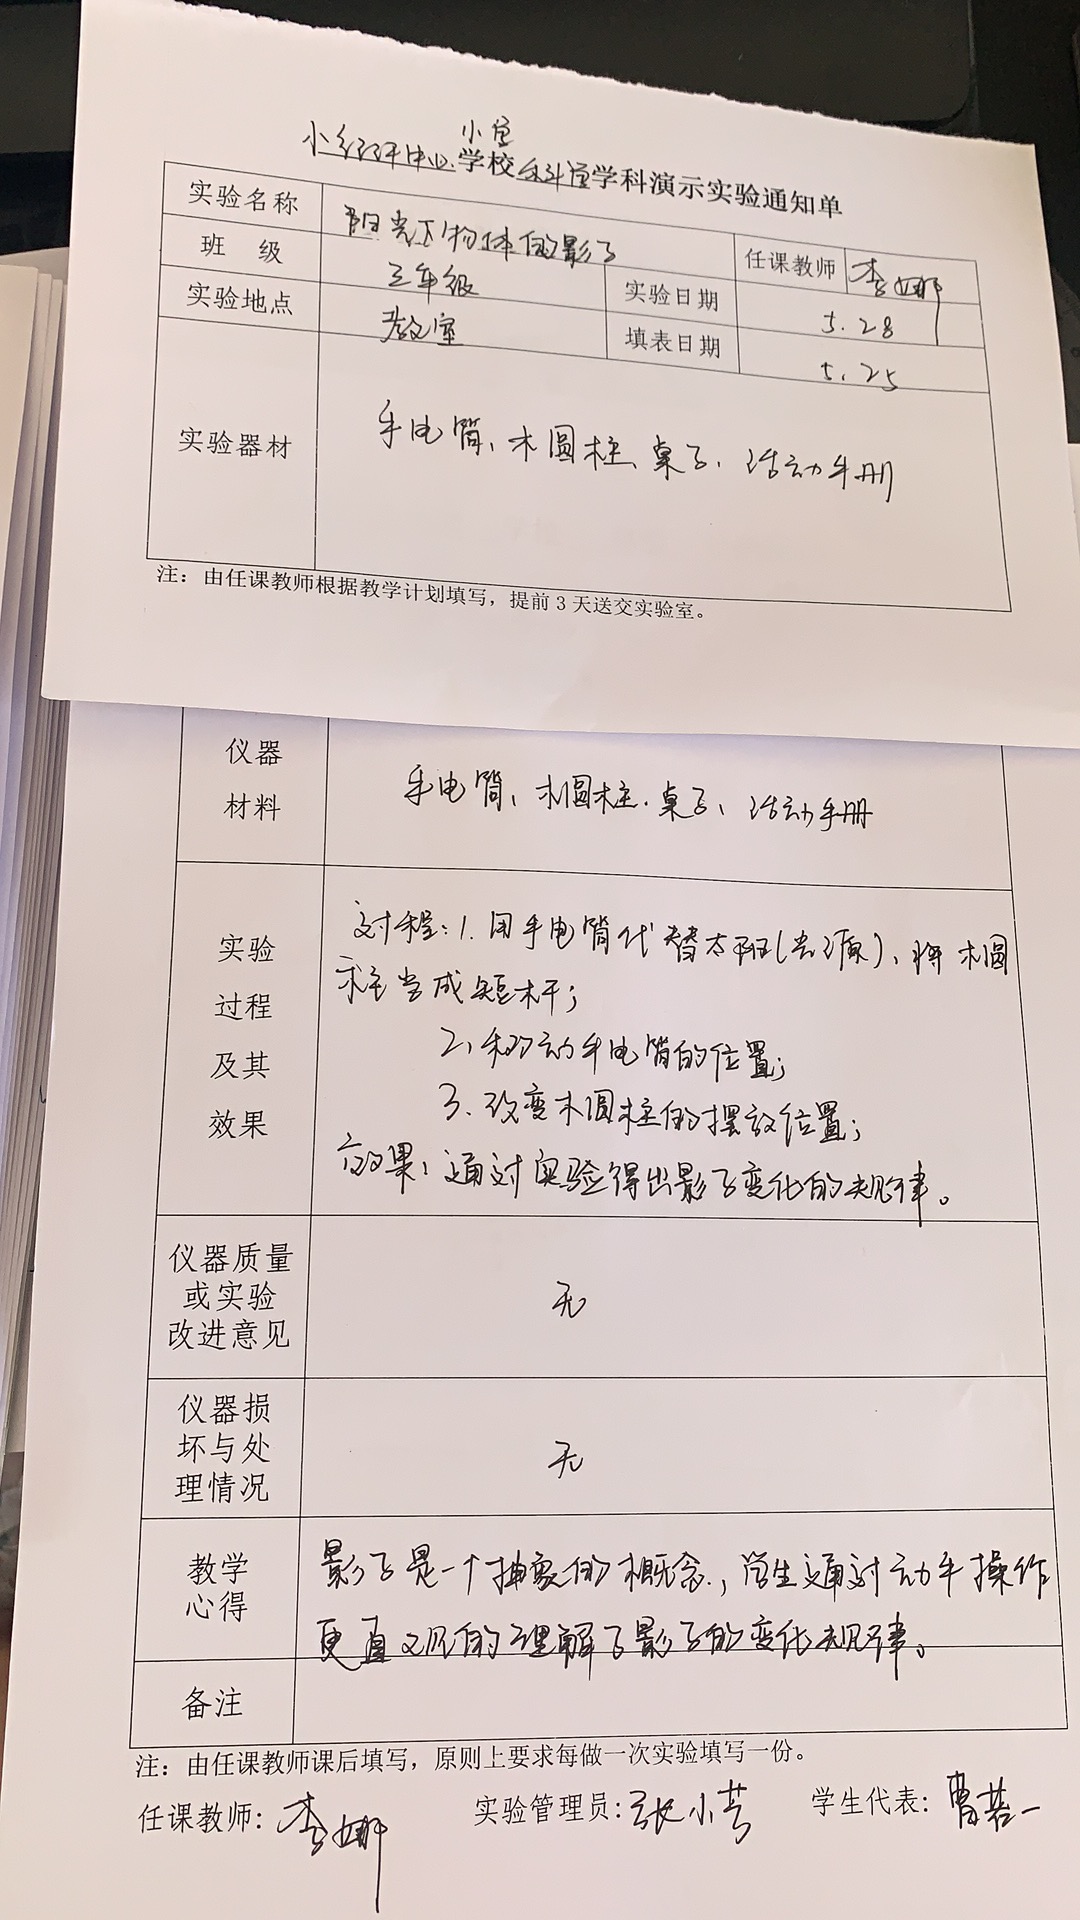 小学
小红环中心学校科学学科演示实验通知单
实验名称 阳光下物体的影子 任课教师 李娜
班 级 三年级 实验日期 5.28
实验地点 教室 填表日期 5.25
实验器材 手电筒、木圆柱、桌子、活动手册
注：由任课教师根据教学计划填写，提前3天送交实验室。
仪器
材料
手电筒、木圆柱、桌子、活动手册
实验
过程
及其
效果
过程：1.用手电筒代替太阳(光源)、将木圆
柱当成短杆；
2、移动手电筒的位置；
3.改变木圆柱的摆放位置；
效果：通过实验得出影子变化的规律。
仪器质量
或实验
改进意见
无
仪器损
坏与处
理情况
无
教学
心得
影子是一个抽象的概念，学生通过动手操作
更直观的理解了影子的变化规律。
备注
注：由任课教师课后填写，原则上要求每做一次实验填写一份。
任课教师：李娜 实验管理员：张小芳 学生代表：曹若一